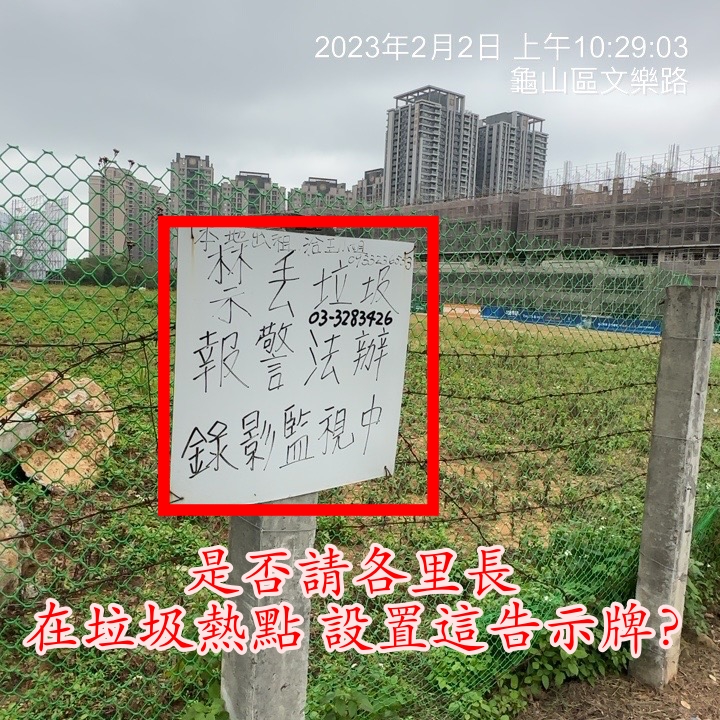 2023年2月2日 上午10:29:03
龜山區文樂路
禁丟垃圾
03-3283426
報警法辦
錄影監視中
是否請各里長
在垃圾熱點 設置這告示牌?